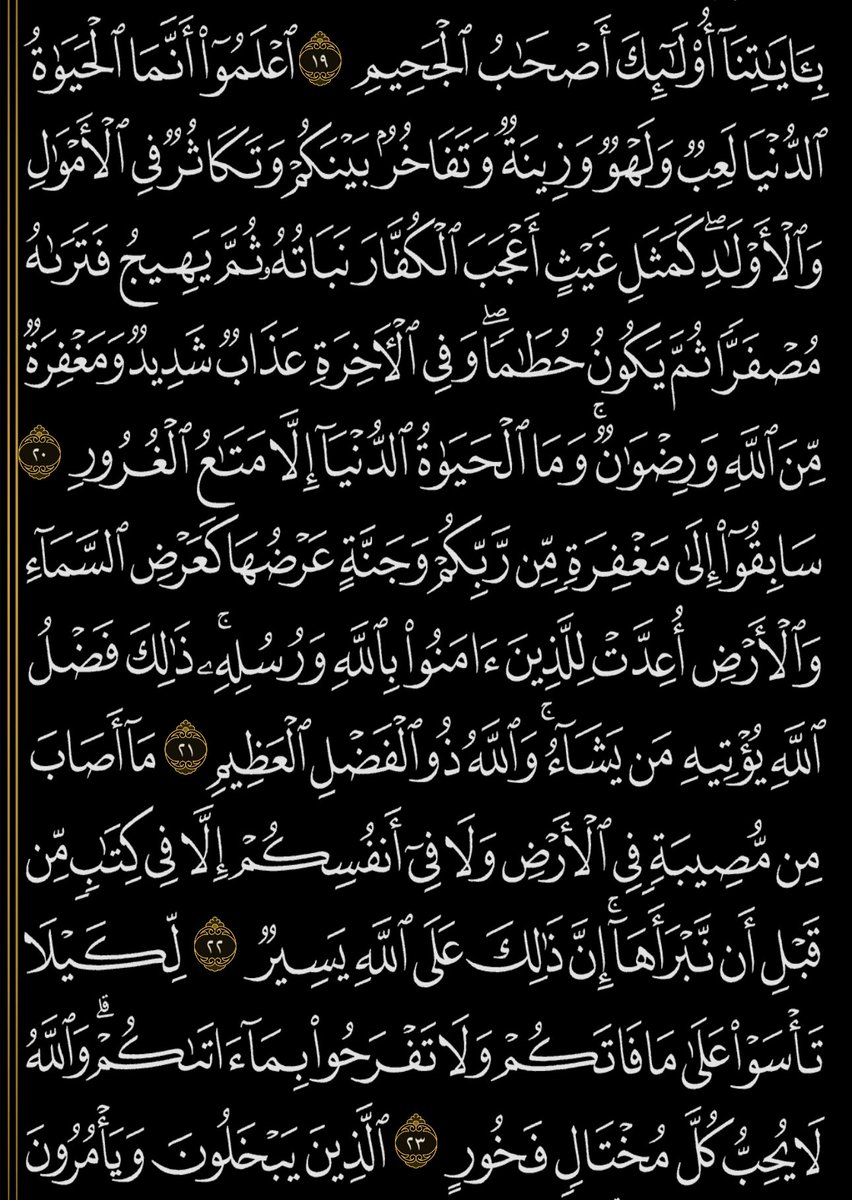 بِـَٔايَـٰتِنَآ أُو۟لَـٰٓئِكَ أَصْحَـٰبُ ٱلْجَحِيمِ ١٩ ٱعْلَمُوٓا۟ أَنَّمَا ٱلْحَيَوٰةُ
ٱلدُّنْيَا لَعِبٌ وَلَهْوٌ وَزِينَةٌ وَتَفَاخُرٌۢ بَيْنَكُمْ وَتَكَاثُرٌ فِى ٱلْأَمْوَٰلِ
وَٱلْأَوْلَـٰدِ ۖ كَمَثَلِ غَيْثٍ أَعْجَبَ ٱلْكُفَّارَ نَبَاتُهُۥ ثُمَّ يَهِيجُ فَتَرَىٰهُ
مُصْفَرًّا ثُمَّ يَكُونُ حُطَـٰمًا ۖ وَفِى ٱلْـَٔاخِرَةِ عَذَابٌ شَدِيدٌ وَمَغْفِرَةٌ
مِّنَ ٱللَّهِ وَرِضْوَٰنٌ ۚ وَمَا ٱلْحَيَوٰةُ ٱلدُّنْيَآ إِلَّا مَتَـٰعُ ٱلْغُرُورِ ٢٠
سَابِقُوٓا۟ إِلَىٰ مَغْفِرَةٍ مِّن رَّبِّكُمْ وَجَنَّةٍ عَرْضُهَا كَعَرْضِ ٱلسَّمَآءِ
وَٱلْأَرْضِ أُعِدَّتْ لِلَّذِينَ ءَامَنُوا۟ بِٱللَّهِ وَرُسُلِهِۦ ۚ ذَٰلِكَ فَضْلُ
ٱللَّهِ يُؤْتِيهِ مَن يَشَآءُ ۚ وَٱللَّهُ ذُو ٱلْفَضْلِ ٱلْعَظِيمِ ٢١ مَآ أَصَابَ
مِن مُّصِيبَةٍ فِى ٱلْأَرْضِ وَلَا فِىٓ أَنفُسِكُمْ إِلَّا فِى كِتَـٰبٍ مِّن
قَبْلِ أَن نَّبْرَأَهَآ ۚ إِنَّ ذَٰلِكَ عَلَى ٱللَّهِ يَسِيرٌ ٢٢ لِّكَيْلَا
تَأْسَوْا۟ عَلَىٰ مَا فَاتَكُمْ وَلَا تَفْرَحُوا۟ بِمَآ ءَاتَىٰكُمْ ۗ وَٱللَّهُ
لَا يُحِبُّ كُلَّ مُخْتَالٍ فَخُورٍ ٢٣ ٱلَّذِينَ يَبْخَلُونَ وَيَأْمُرُونَ